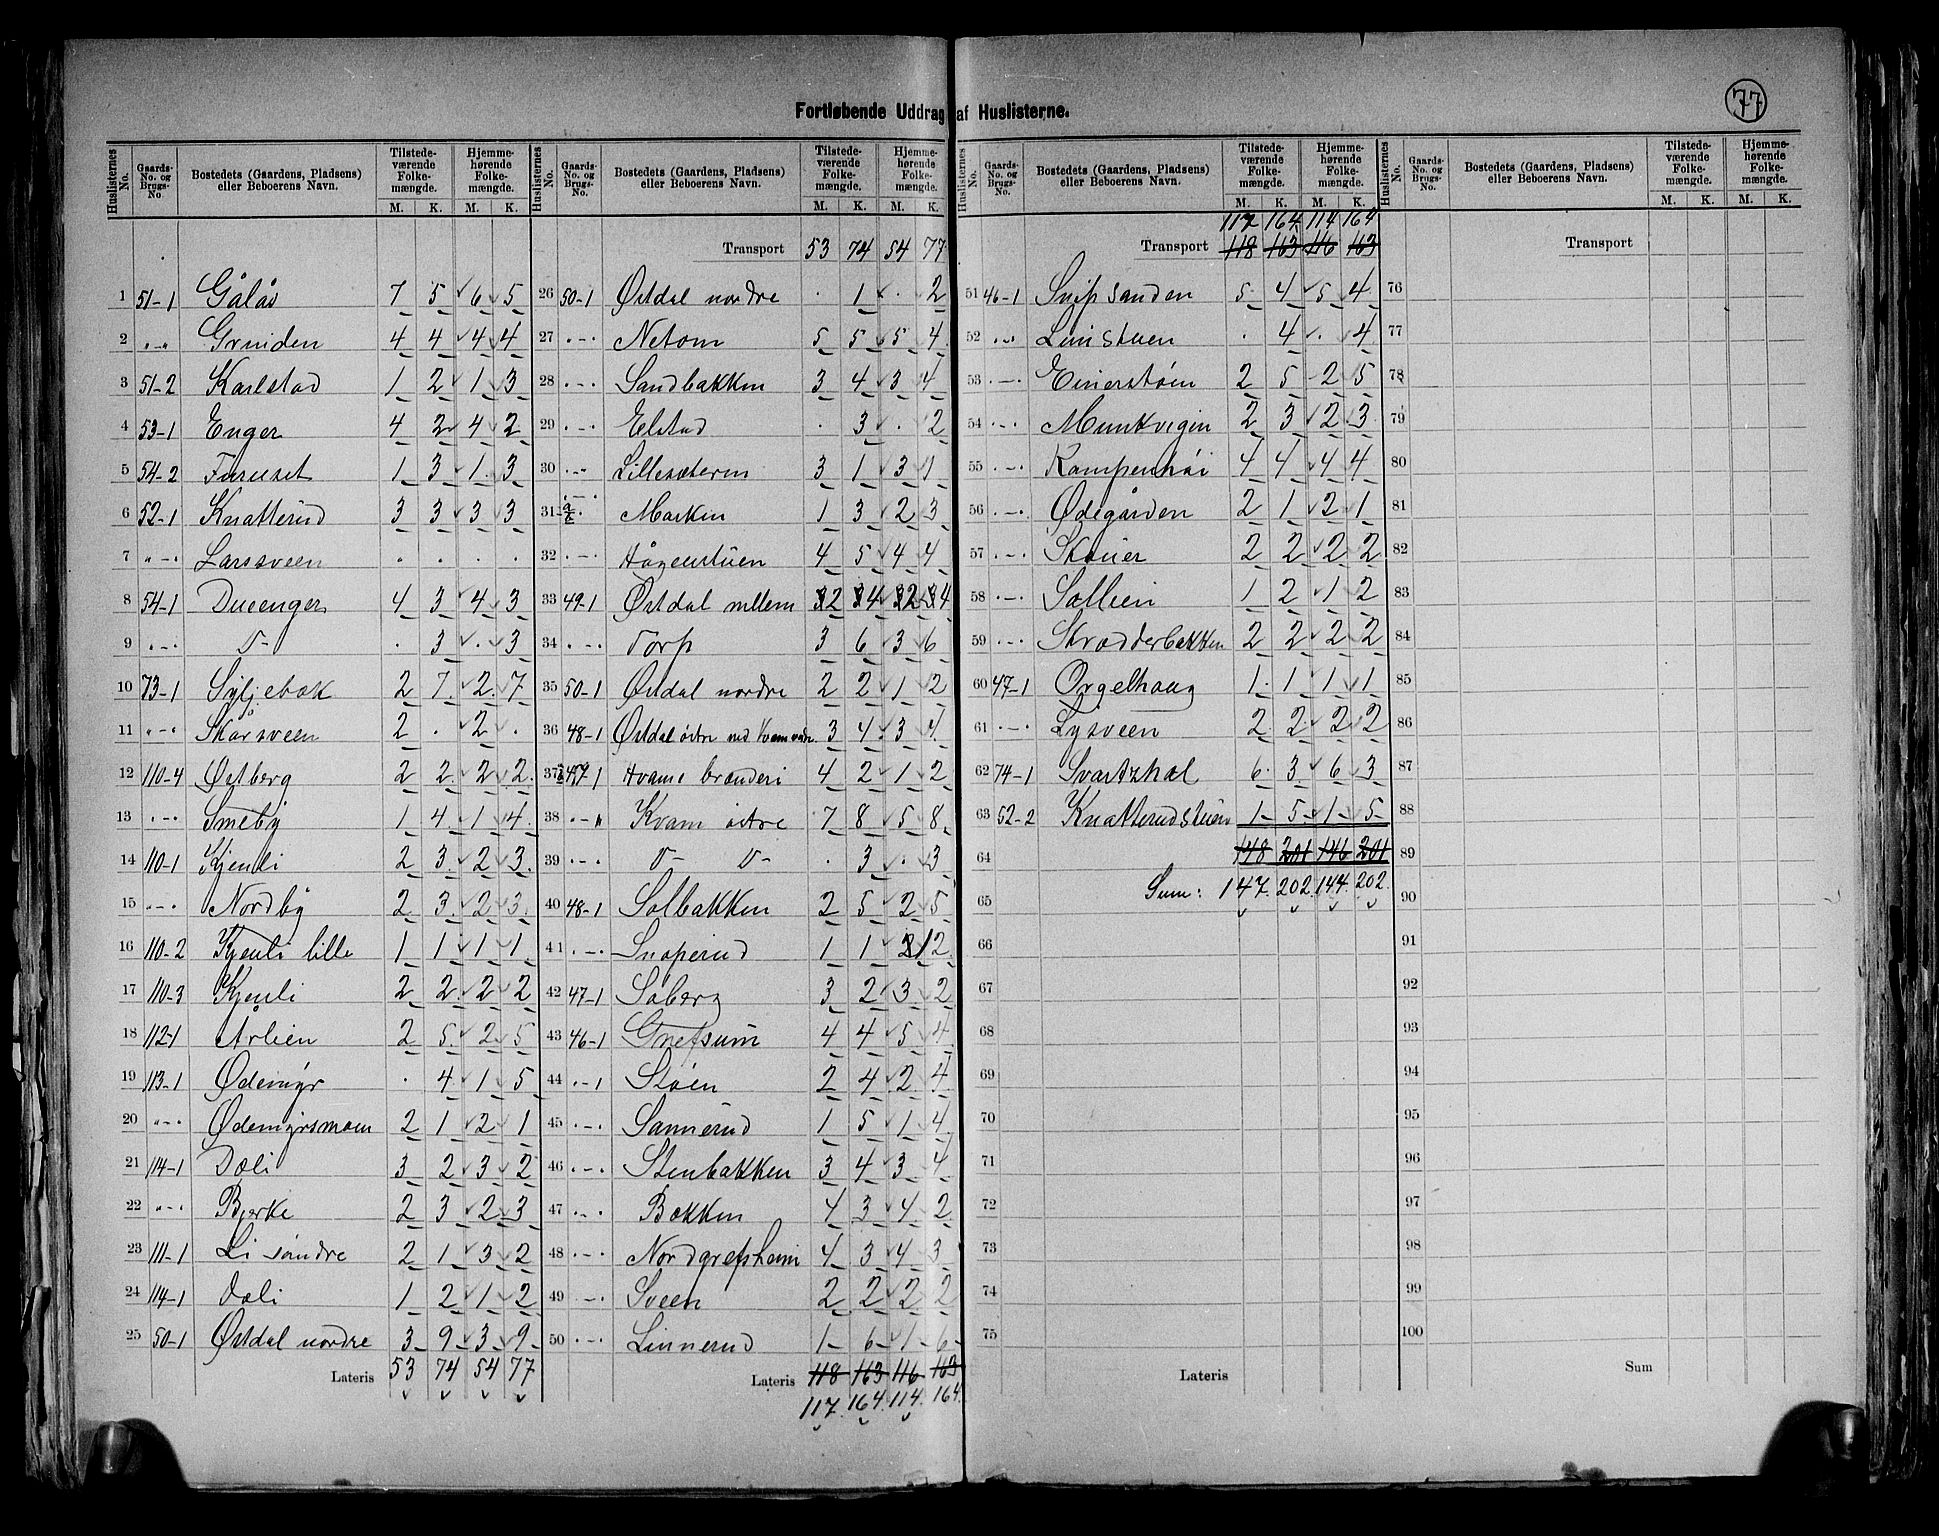 77
Fortløbende Uddrag af Huslisterne.
Huslisternes No. | Gaards-No. og Brugs-No. | Bostedets (Gaardens, Pladsens) eller Beboerens Navn. | Tilstedeværende Folkemængde. M. K. | Hjemmehørende Folkemængde. M. K.
1 51-1 Gålås 7 5 6 5
2 „-„ Grinden 4 4 4 4
3 51-2 Karlstad 1 2 1 3
4 53-1 Enger 4 2 4 2
5 54-2 Furuset 1 3 1 3
6 52-1 Knatterud 3 3 3 3
7 „-„ Larssveen . . . .
8 54-1 Dueenger 4 3 4 3
9 „-„ 〃 . 3 . 3
10 73-1 Syljebæk 2 7 2 7
11 „-„ Skårsveen 2 . 2 .
12 110-4 Østberg 2 2 2 2
13 „-„ Smeby 1 4 1 4
14 110-1 Kjenli 2 3 2 3
15 „-„ Nordby 2 3 2 3
16 110-2 Kjenli lille 1 1 1 1
17 110-3 Kjenli 2 2 2 2
18 112-1 Årlien 2 5 2 5
19 113-1 Ødemyr . 4 1 5
20 „-„ Ødemyrsmoen 2 1 2 1
21 114-1 Dæli 3 2 3 2
22 „-„ Bjerke 2 3 2 3
23 111-1 Li søndre 2 1 3 2
24 114-1 Dæli 1 2 1 2
25 50-1 Østdal nordre 3 9 3 9
Lateris 53 74 54 77
Huslisternes No. | Gaards-No. og Brugs-No. | Bostedets (Gaardens, Pladsens) eller Beboerens Navn. | Tilstedeværende Folkemængde. M. K. | Hjemmehørende Folkemængde. M. K.
Transport 53 74 54 77
26 50-1 Østdal nordre . 1 . 2
27 „-„ Netom 5 5 5 4
28 „-„ Sandbakken 3 4 3 4
29 „-„ Elstad . 3 . 2
30 „-„ Lillesæteren 3 1 3 1
31 Marken 1 3 2 3
32 „-„ Hågenstuen 4 5 4 4
33 49-1 Østdal mellem 2 4 2 4
34 „-„ Torp 3 6 3 6
35 50-1 Østdal nordre 2 2 1 2
36 48-1 Østdal østre med 3 4 3 4
37 47-1 Kvams brænderi 4 2 1 2
38 „-„ Kvam østre 7 8 5 8
39 „-„ 〃 〃 . 3 . 3
40 48-1 Solbakken 2 5 2 5
41 „-„ Snaperud 1 1 1 2
42 47-1 Soberg 3 2 3 2
43 46-1 Grefsum 4 4 5 4
44 „-1 Støen 2 4 2 4
45 „-„ Sannerud 1 5 1 4
46 „-„ Stenbakken 3 4 3 4
47 „-„ Bakken 4 3 4 2
48 „-„ Nordgrefsheim 4 3 4 3
49 „-„ Sveen 2 2 2 2
50 „-„ Linnerud 1 6 1 6
Lateris 118 163 116 163
117 164 114 164
Huslisternes No. | Gaards-No. og Brugs-No. | Bostedets (Gaardens, Pladsens) eller Beboerens Navn. | Tilstedeværende Folkemængde. M. K. | Hjemmehørende Folkemængde. M. K.
117 164 114 164
Transport 118 163 116 163
51 46-1 Snipsanden 5 4 5 4
52 „-„ Linstuen . 4 . 4
53 „-„ Einerstøen 2 5 2 5
54 „-„ Munkvigen 2 3 2 3
55 „-„ Kampenhøi 4 4 4 4
56 „-„ Ødegården 2 1 2 1
57 „-„ Skauer 2 2 2 2
58 „-„ Sollien 1 2 1 2
59 „-„ Skrædderbakken 2 2 2 2
60 47-1 Orgelhaug 1 1 1 1
61 „-„ Lysveen 2 2 2 2
62 74-1 Svartzhol 6 3 6 3
63 52-2 Knatterudstuen 1 5 1 5
64 148 201 146 201
65 Sum: 147 202 144 202
66
67
68
69
70
71
72
73
74
75
Lateris
Huslisternes No. | Gaards-No. og Brugs-No. | Bostedets (Gaardens, Pladsens) eller Beboerens Navn. | Tilstedeværende Folkemængde. M. K. | Hjemmehørende Folkemængde. M. K.
Transport
76
77
78
79
80
81
82
83
84
85
86
87
88
89
90
91
92
93
94
95
96
97
98
99
100
Sum